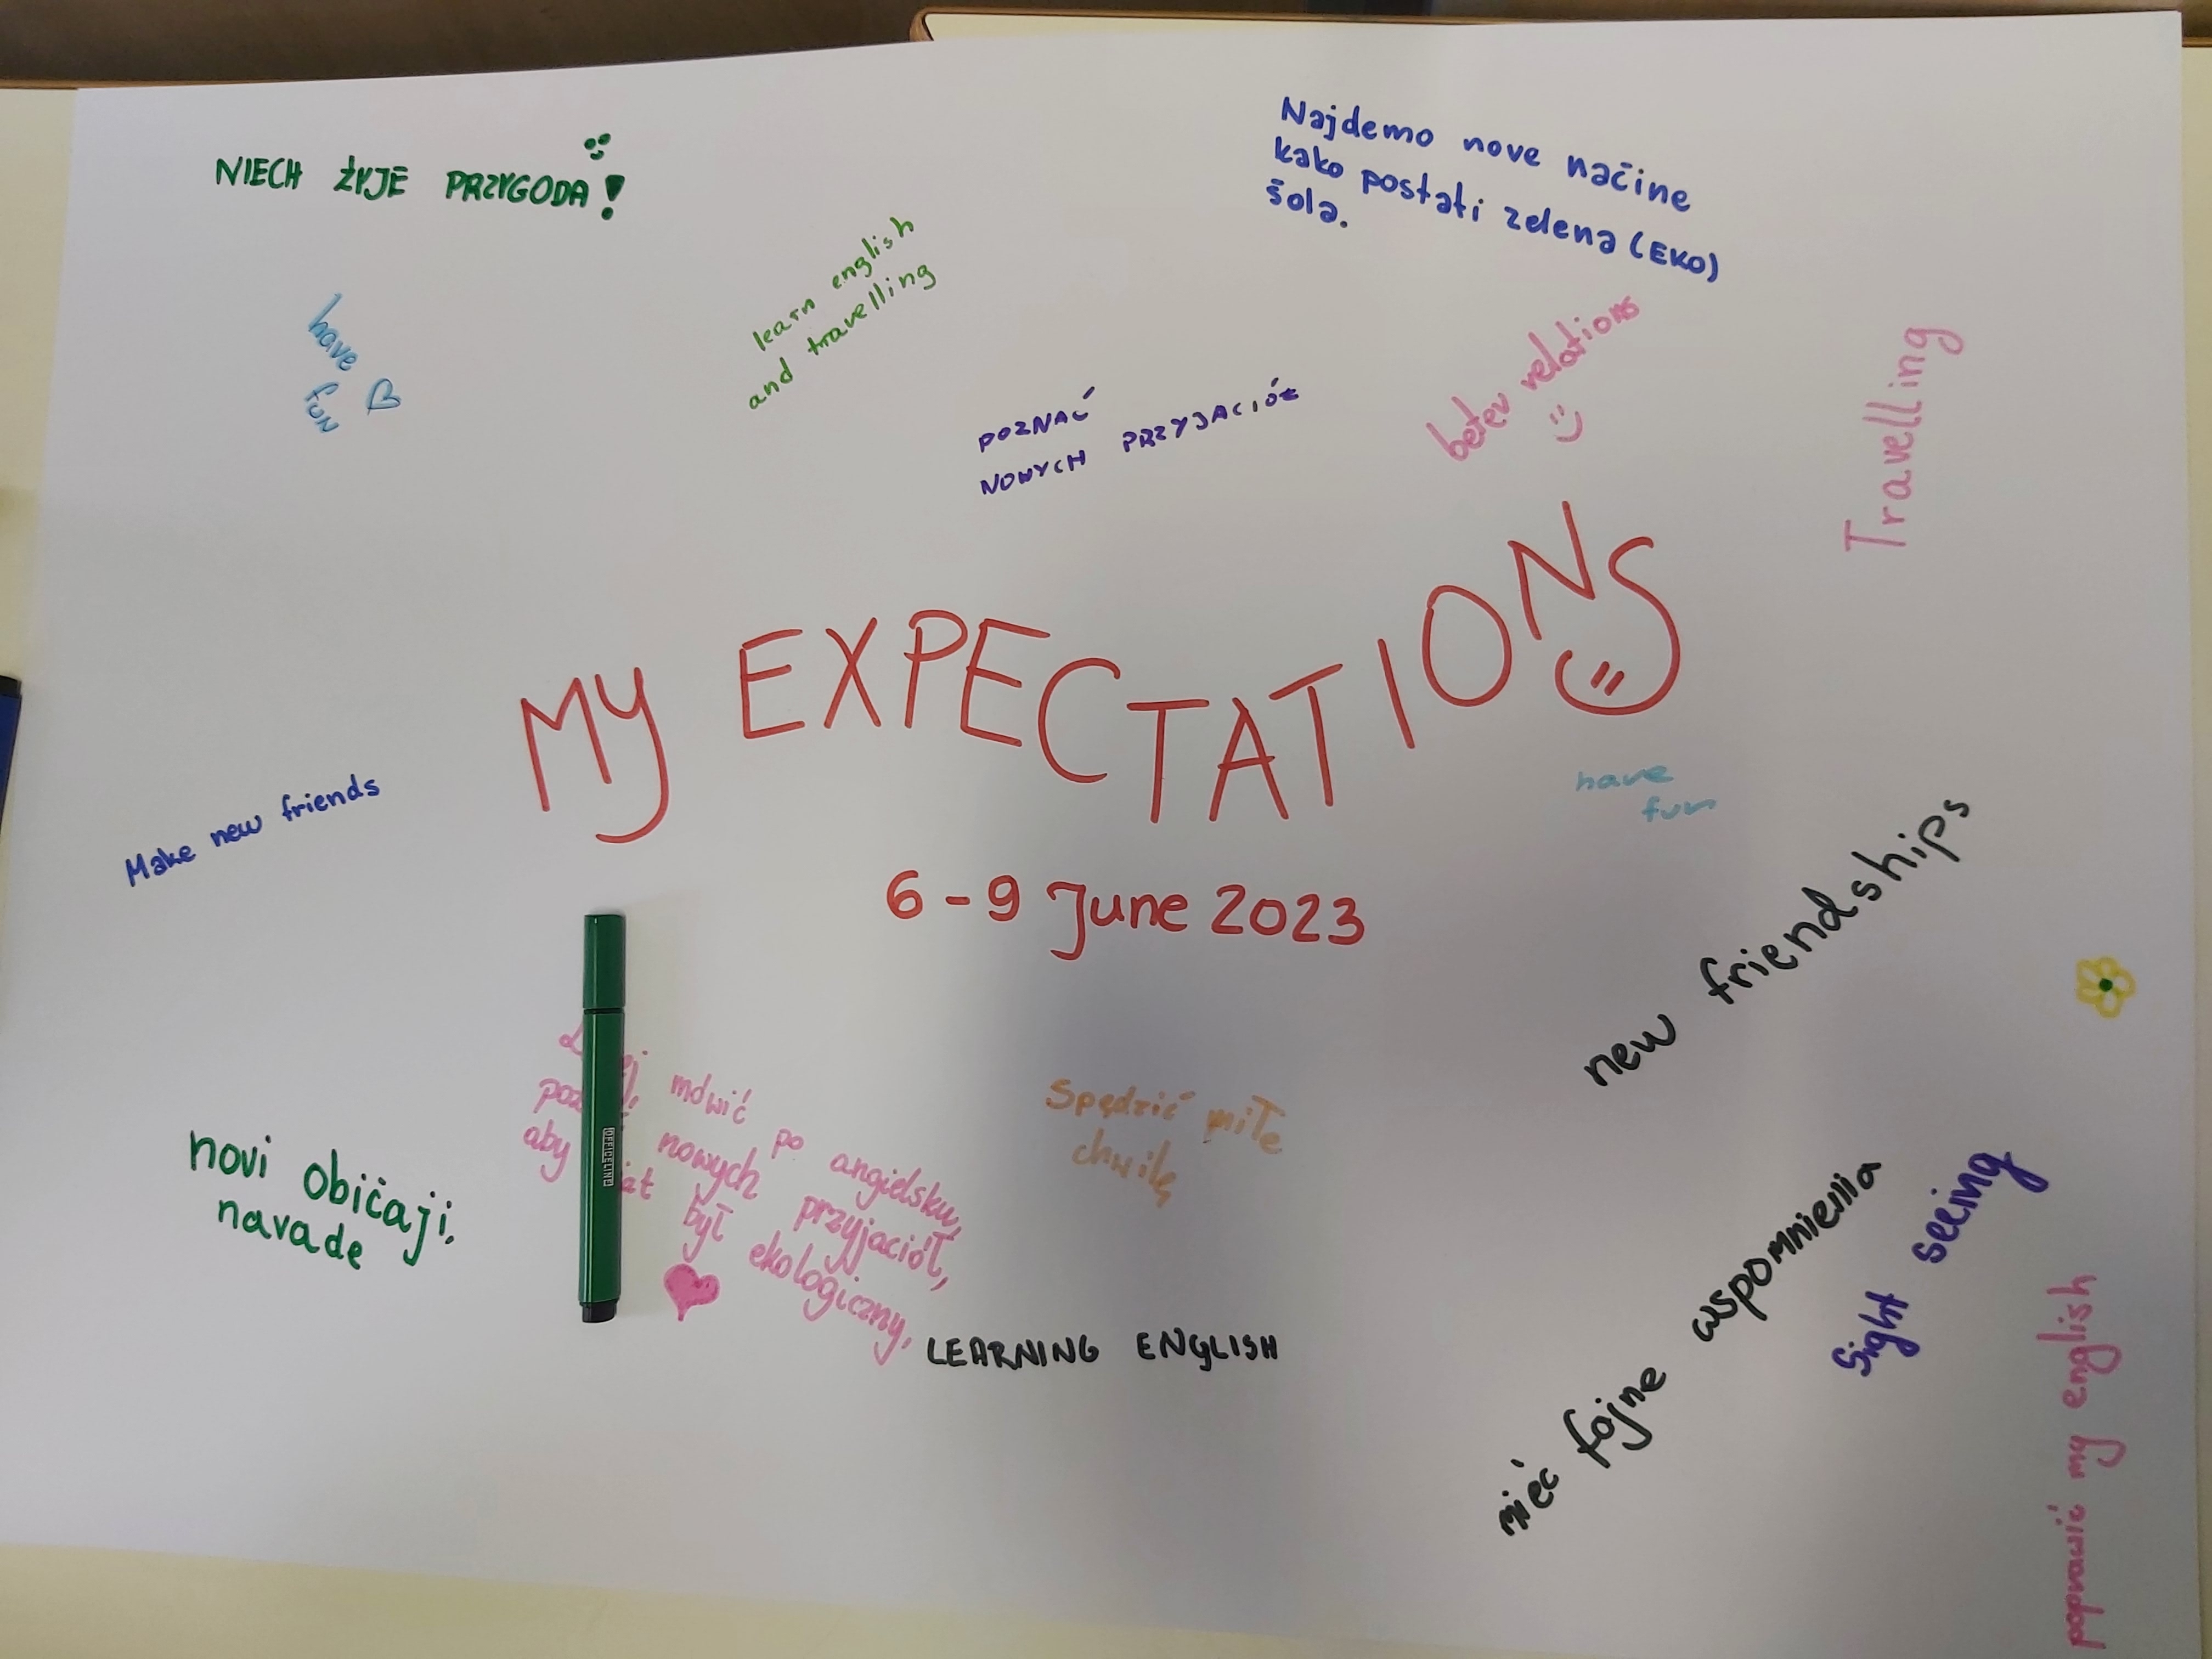 NIECH ŻYJE PRZYGODA!
Najdemo nove načine
kako postati zelena (EKO)
šola.
have
fun
learn english
and travelling
POZNAĆ
NOWYCH PRZYJACIÓŁ
beter relations
Travelling
MY EXPECTATIONS
6-9 June 2023
have
fun
Make new friends
new friendships
mówić po angielsku,
nowych przyjaciół,
aby był ekologiczny,
Spędzić miłe
chwilę
novi običaji,
navade
LEARNING ENGLISH
mieć fajne wspomnienia
Sight seeing
poprawić my english
OFFICELINE